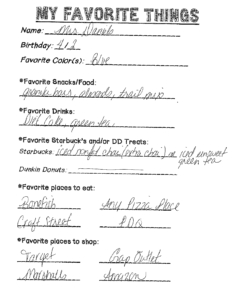 MY FAVORITE THINGS
Name: Mrs. Daniels
Birthday: 4/22
Favorite Color(s): Blue
*Favorite Snacks/Food:
granola bars, almonds, trail mix
*Favorite Drinks:
Diet Coke, green tea
*Favorite Starbuck's and/or DD Treats:
Starbucks: iced nonfat chai (extra chai) or iced unsweet
green tea
Dunkin Donuts:
*Favorite places to eat:
Bonefish Any Pizza Place
Craft Street PDQ
*Favorite places to shop:
Target Gap Outlet
Marshalls Amazon